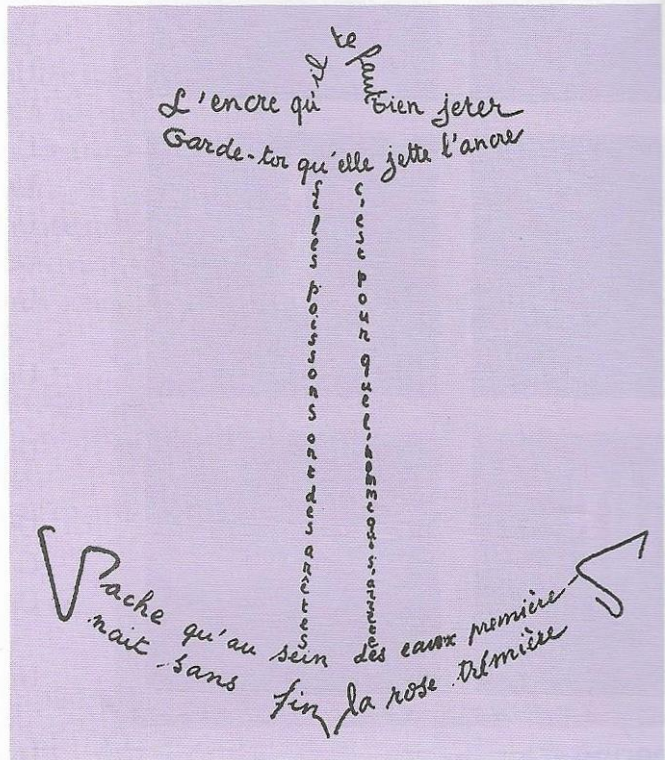 L'encre qu'il te faut bien jeter
Garde-toi qu'elle jette l'ancre
si les poissons ont des arêtes
c'est pour que l'homme qui s'arrête
Sache qu'au sein des eaux premières
nait sans fin la rose trémière